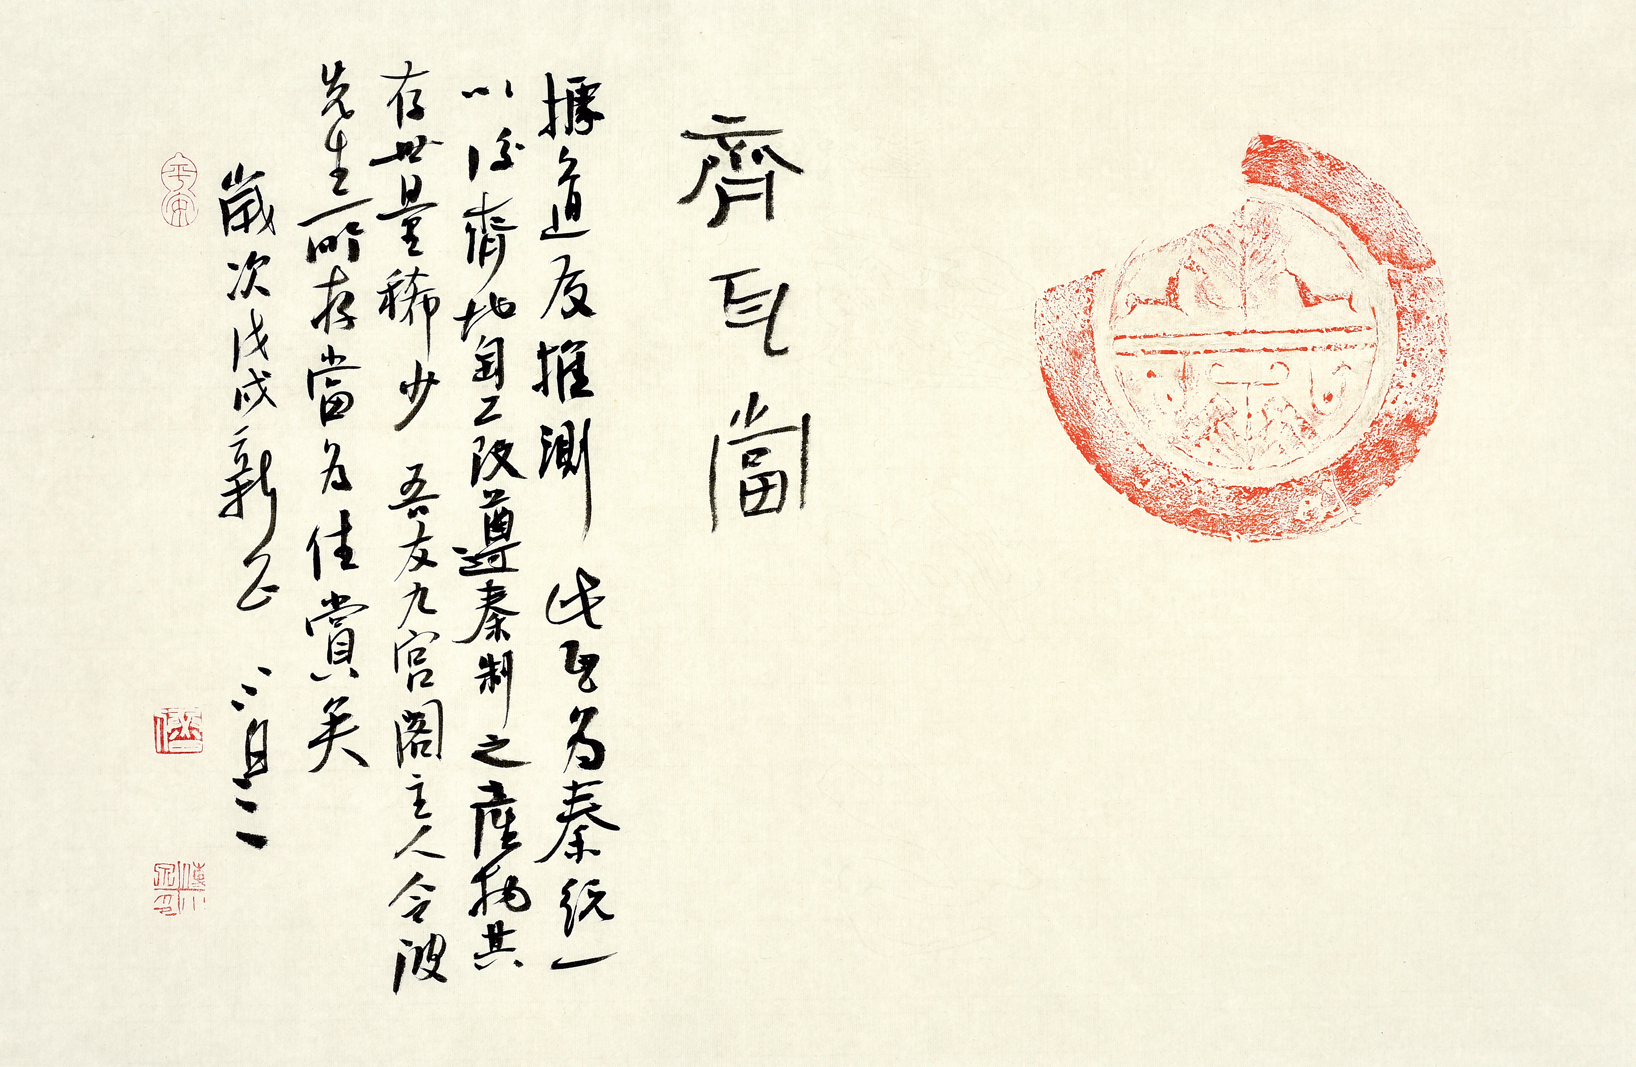 齊瓦當
據道友推測此瓦為秦統一
以後齊地陶工改遵秦制之產物其
存世量稀少吾友九宮閣主人令波
先生所存當為佳賞矣
歲次戊戌新正